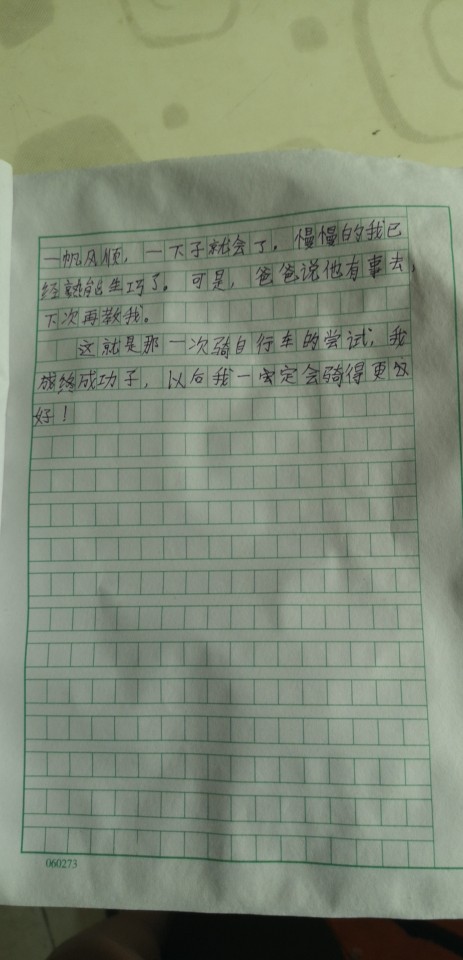 一帆风顺，一下子就会了。慢慢的我已
经熟能生巧了。可是，爸爸说他有事去，
下次再教我。
这就是那一次骑自行车的尝试，我
最终成功了，以后我一定会骑得更
好！
060273